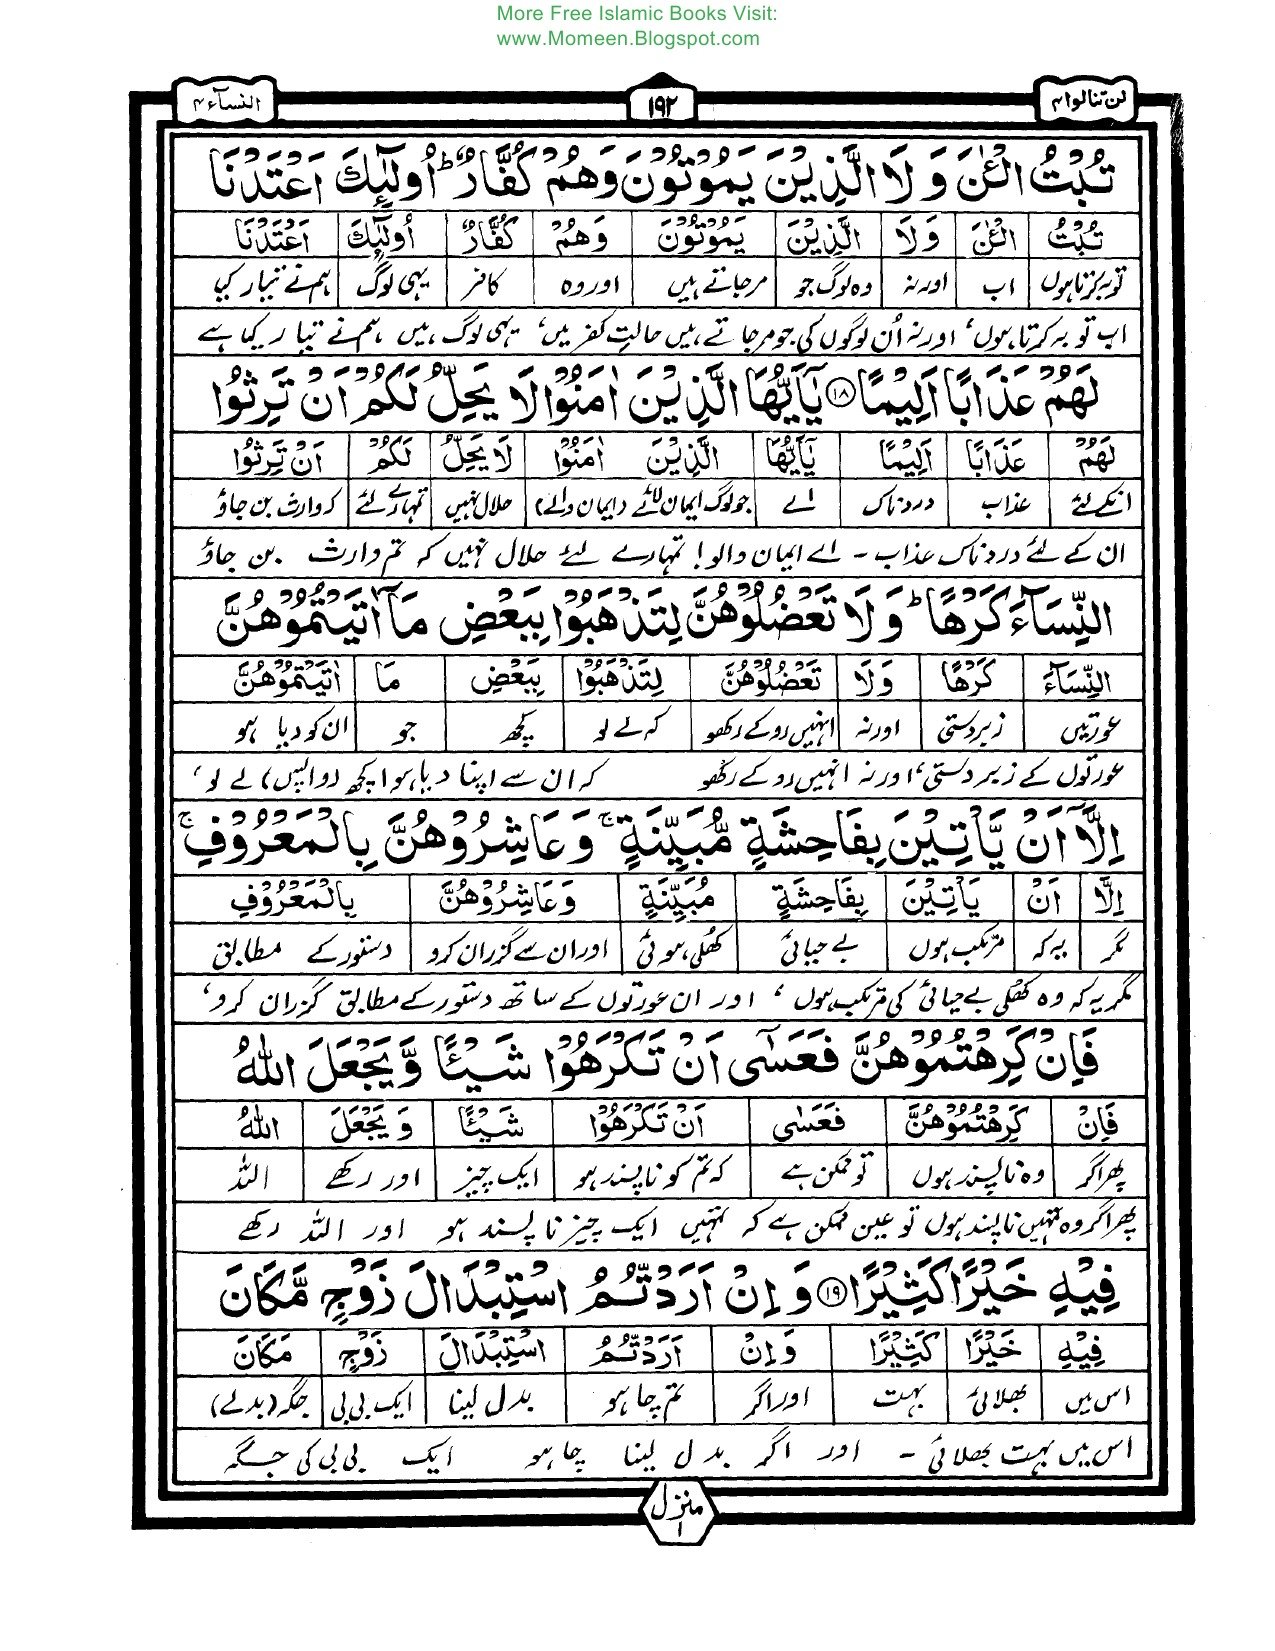 More Free Islamic Books Visit:
www.Momeen.Blogspot.com
لن تنالوا ۴
۱۹۲
النسآء ۴
تُبْتُ الْـٰٔنَ وَ لَا الَّذِیْنَ یَمُوْتُوْنَ وَهُمْ كُفَّارٌ ؕ اُولٰٓئِكَ اَعْتَدْنَا
تُبْتُ الْـٰٔنَ وَلَا الَّذِیْنَ یَمُوْتُوْنَ وَهُمْ كُفَّارٌ اُولٰٓئِكَ اَعْتَدْنَا
توبہ کرتا ہوں اب اور نہ وہ لوگ جو مر جاتے ہیں اور وہ کافر یہی لوگ ہم نے تیار کیا
اب توبہ کرتا ہوں، اور نہ اُن لوگوں کی جو مر جاتے ہیں حالتِ کفر میں، یہی لوگ ہیں ہم نے تیار کیا ہے
لَهُمْ عَذَابًا اَلِیْمًا ۱۸ یٰۤاَیُّهَا الَّذِیْنَ اٰمَنُوْا لَا یَحِلُّ لَكُمْ اَنْ تَرِثُوا
لَهُمْ عَذَابًا اَلِیْمًا یٰۤاَیُّهَا الَّذِیْنَ اٰمَنُوْا لَا یَحِلُّ لَكُمْ اَنْ تَرِثُوا
انکے لئے عذاب دردناک اے جو لوگ ایمان لائے (ایمان والے) حلال نہیں تمہارے لئے کہ وارث بن جاؤ
ان کے لئے دردناک عذاب - اے ایمان والو! تمہارے لئے حلال نہیں کہ تم وارث بن جاؤ
النِّسَآءَ كَرْهًا ؕ وَ لَا تَعْضُلُوْهُنَّ لِتَذْهَبُوْا بِبَعْضِ مَاۤ اٰتَیْتُمُوْهُنَّ
النِّسَآءَ كَرْهًا وَلَا تَعْضُلُوْهُنَّ لِتَذْهَبُوْا بِبَعْضِ مَا اٰتَیْتُمُوْهُنَّ
عورتیں زبردستی اور نہ انہیں روکے رکھو کہ لے لو کچھ جو ان کو دیا ہو
عورتوں کے زبردستی، اور نہ انہیں روکے رکھو کہ ان سے اپنا دیا ہوا کچھ (واپس) لے لو،
اِلَّاۤ اَنْ یَّاْتِیْنَ بِفَاحِشَةٍ مُّبَیِّنَةٍ ۚ وَ عَاشِرُوْهُنَّ بِالْمَعْرُوْفِ ۚ
اِلَّا اَنْ یَاْتِیْنَ بِفَاحِشَةٍ مُبَیِّنَةٍ وَعَاشِرُوْهُنَّ بِالْمَعْرُوْفِ
مگر یہ کہ مرتکب ہوں بے حیائی کھلی ہوئی اور ان سے گزران کرو دستور کے مطابق
مگر یہ کہ وہ کھلی بے حیائی کی مرتکب ہوں، اور ان عورتوں کے ساتھ دستور کے مطابق گزران کرو،
فَاِنْ كَرِهْتُمُوْهُنَّ فَعَسٰۤی اَنْ تَكْرَهُوْا شَیْئًا وَّ یَجْعَلَ اللّٰهُ
فَاِنْ كَرِهْتُمُوْهُنَّ فَعَسٰی اَنْ تَكْرَهُوْا شَیْئًا وَ یَجْعَلَ اللّٰهُ
پھر اگر وہ ناپسند ہوں تو ممکن ہے کہ تم کو ناپسند ہو ایک چیز اور رکھے اللہ
پھر اگر وہ تمہیں ناپسند ہوں تو عین ممکن ہے کہ تمہیں ایک چیز ناپسند ہو اور اللہ رکھے
فِیْهِ خَیْرًا كَثِیْرًا ۱۹ وَ اِنْ اَرَدْتُّمُ اسْتِبْدَالَ زَوْجٍ مَّكَانَ
فِیْهِ خَیْرًا كَثِیْرًا وَ اِنْ اَرَدْتُّمُ اسْتِبْدَالَ زَوْجٍ مَكَانَ
اس میں بھلائی بہت اور اگر تم چاہو بدل لینا ایک بی بی جگہ (بدلے)
اس میں بہت بھلائی - اور اگر بدل لینا چاہو ایک بی بی کی جگہ
منزل ۱